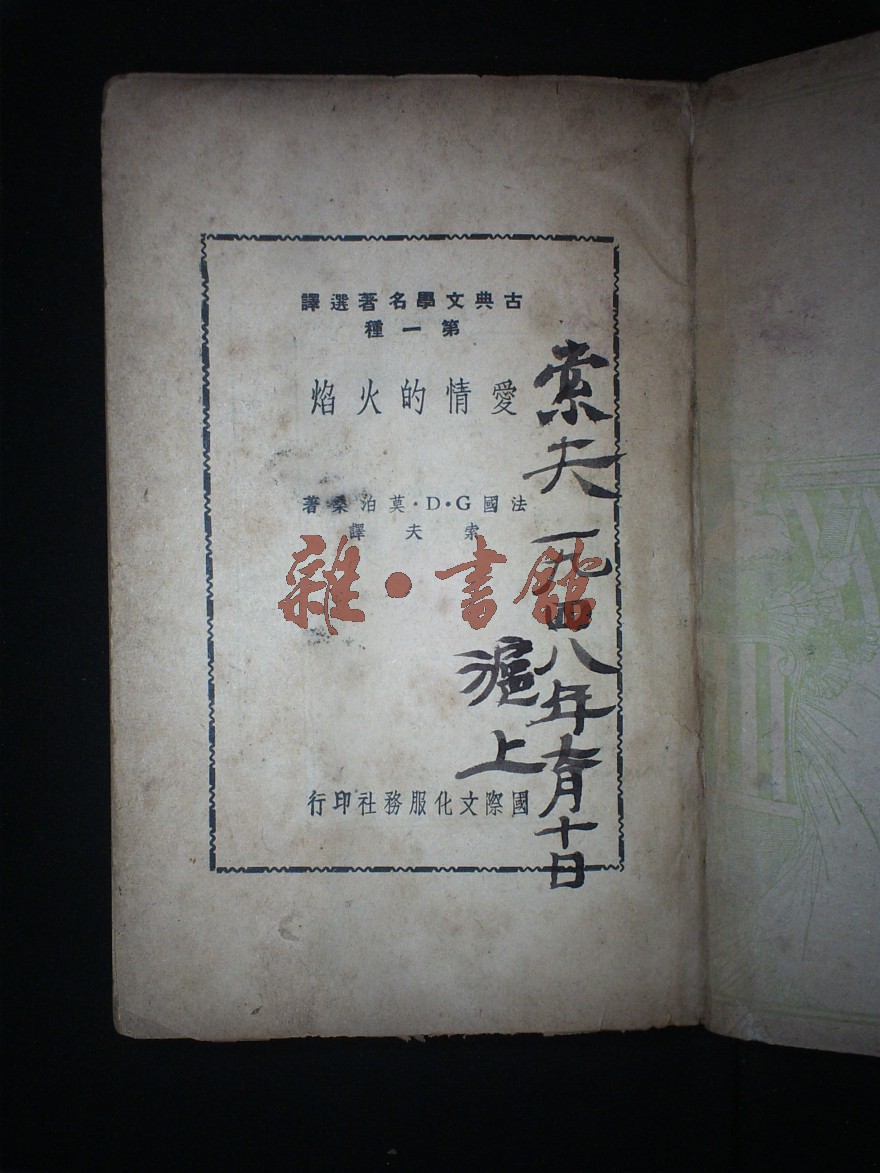 古典文學名著選譯
第一種
愛情的火焰
法國G·D·莫泊桑著
索夫譯
國際文化服務社印行
索夫一九四八年六月十日
滬上
雜·書館